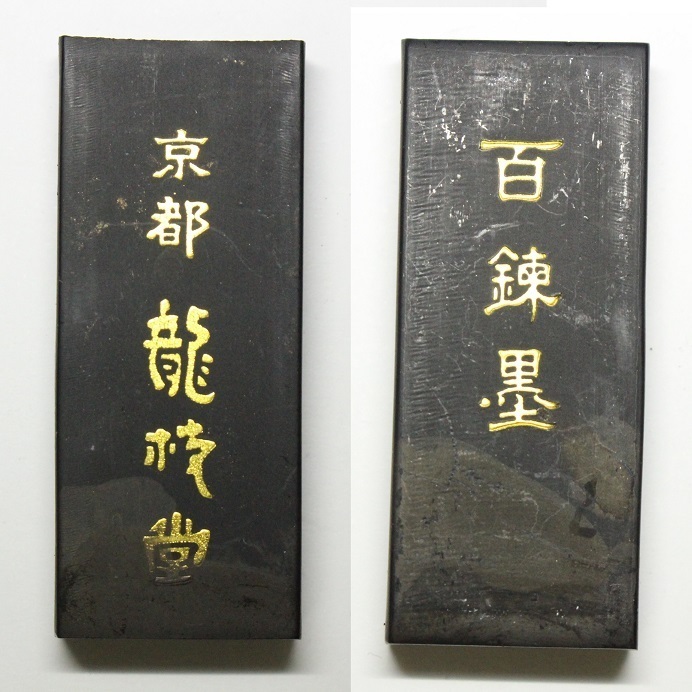 京都 龍枝堂
百錬墨